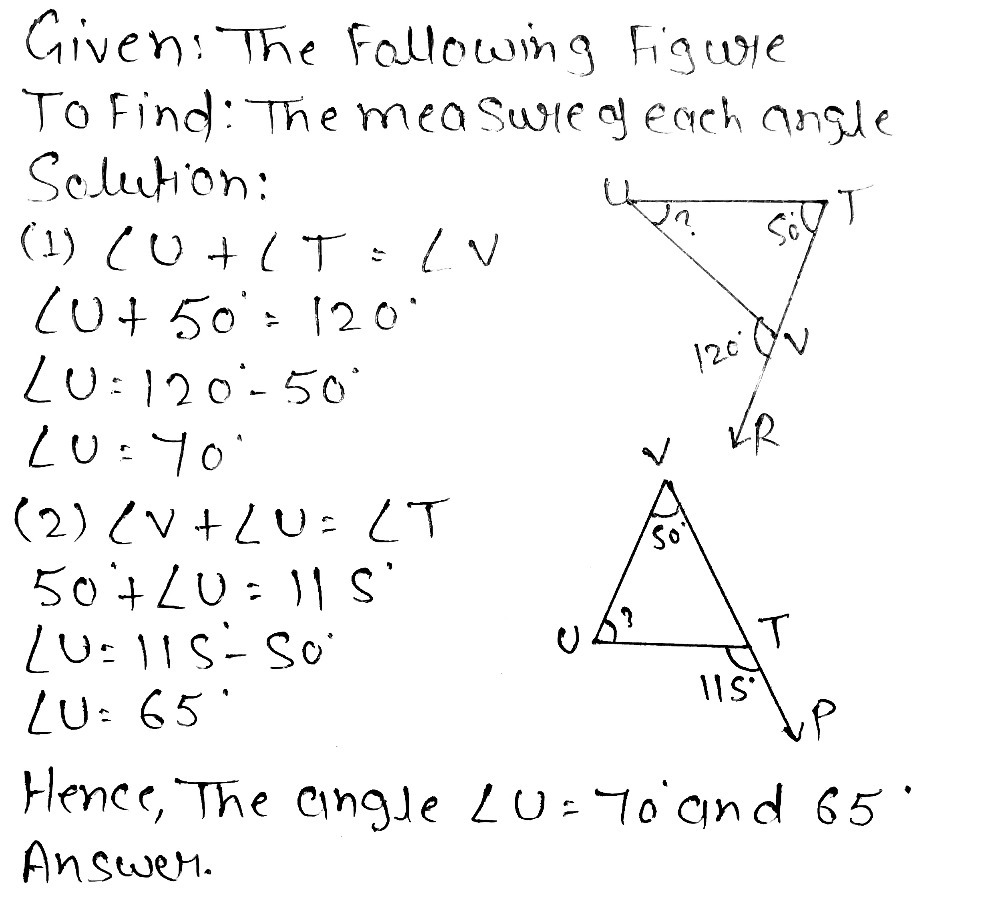 Given: The Following Figure
To Find: The measure of each angle
Solution:
(1) ∠U + ∠T = ∠V
∠U + 50° = 120°
∠U = 120° - 50°
∠U = 70°
U
?
50°
T
120°
V
R
(2) ∠V + ∠U = ∠T
50° + ∠U = 115°
∠U = 115° - 50°
∠U = 65°
V
50°
U
?
T
115°
P
Hence, The angle ∠U = 70° and 65°
Answer.